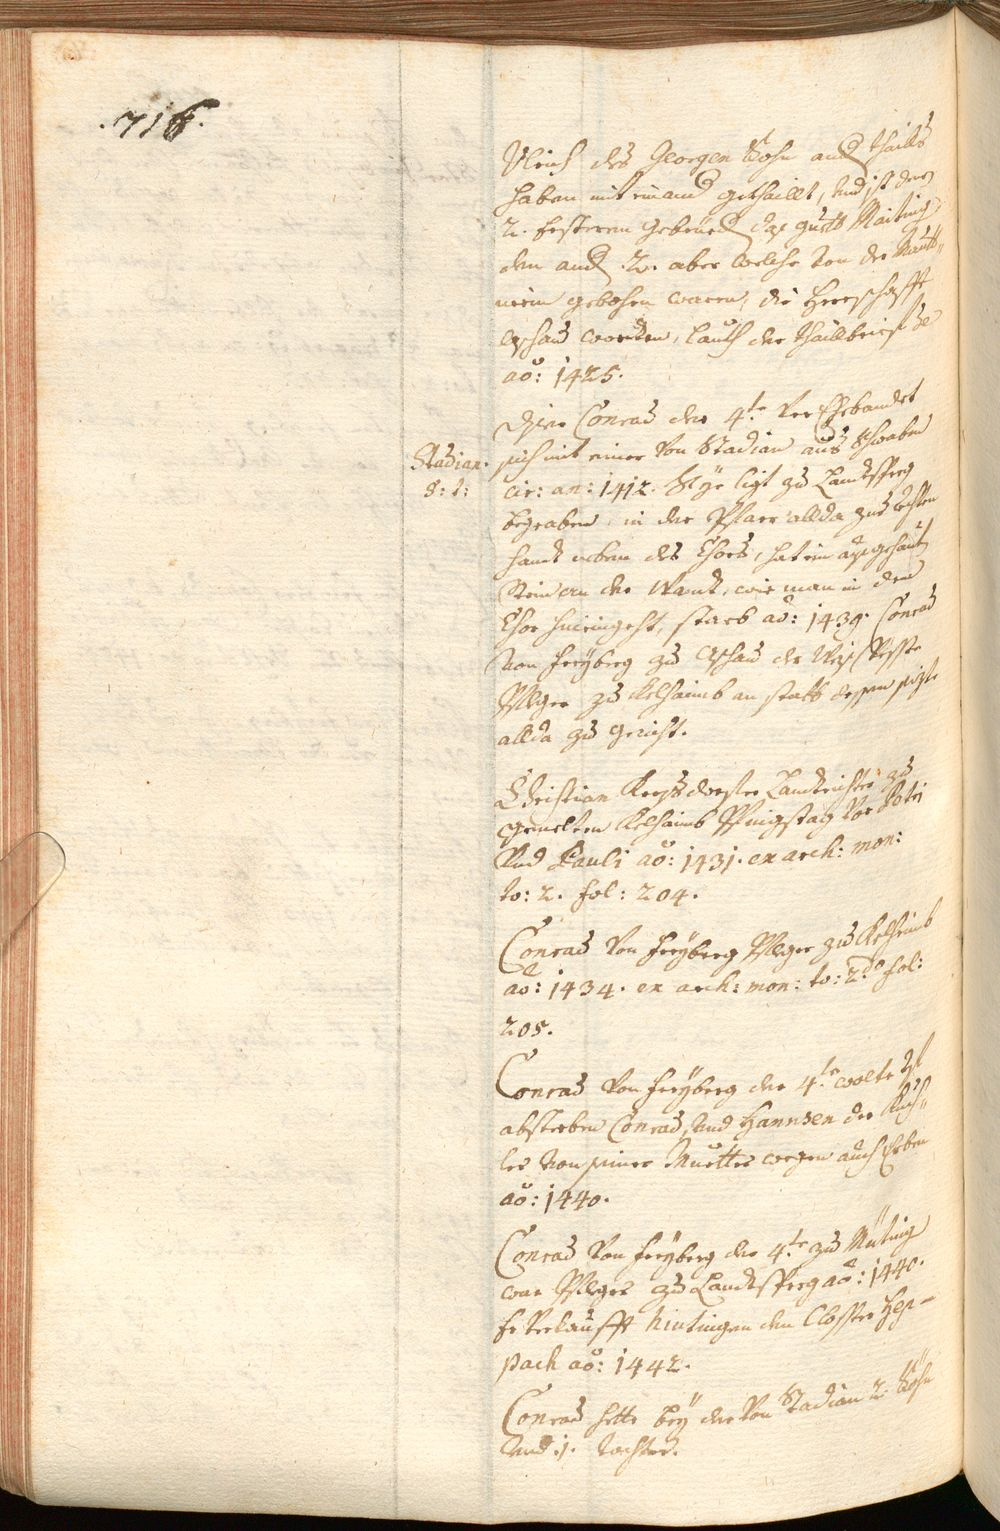 .716.
Ulrich des Georgen Sohn and. thaills
haben mit einand. gethaillt, und ist den
2. ersteren gebrüed. das guett Waiting
den and. 2. aber welche von der Mautt-
nerin gebohrn waren, die Herrschafft
Aschau worden, lauth der thaillbrief de
aõ: 1425.
Diser Conrad der 4.te verEhebandet
sich mit einer von Stadian aus Schwaben
Stadian.
S: 1:
cir: an: 1412. Sye ligt zu Landtsperg
begraben, in der Pfarr allda zur rechten
handt neben des Chors, hat ein ausgehaut
Stein an der Wandt, wie man in den
Chor hineingeht, starb aõ: 1439. Conrad
von Freyberg zu Aschau der Zeit
Pfleger zu Kelhaimb an statt dessen sizte
allda zu gericht.
Christian Landrichter zu
gemelten Kelhaimb Pfingstag vor Petri
und Pauli aõ: 1431. ex arch: mon:
to: 2. fol: 204.
Conrad von Freyberg Pfleger zu Kelhaimb
aõ: 1434. ex arch: mon: to: 2.do fol:
205.
Conrad von Freyberg der 4.te wolte
absterben Conrad, und Hannsen der Kuch-
ler von seiner Muetter wegen auch Erben
aõ: 1440.
Conrad von Freyberg der 4.te zu
war Pfleger zu Landtsperg aõ: 1440.
Er verkaufft den Closter Hep-
pach aõ: 1442.
Conrad hette bey der von Stadian 2. Söhn
und 1. tochter.